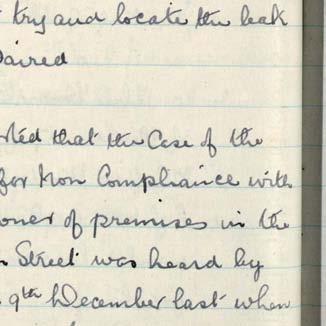 try and locate the leak
aired
rted that the Case of the
for Non Compliance with
oner of premises in the
Street was heard by
9th December last when